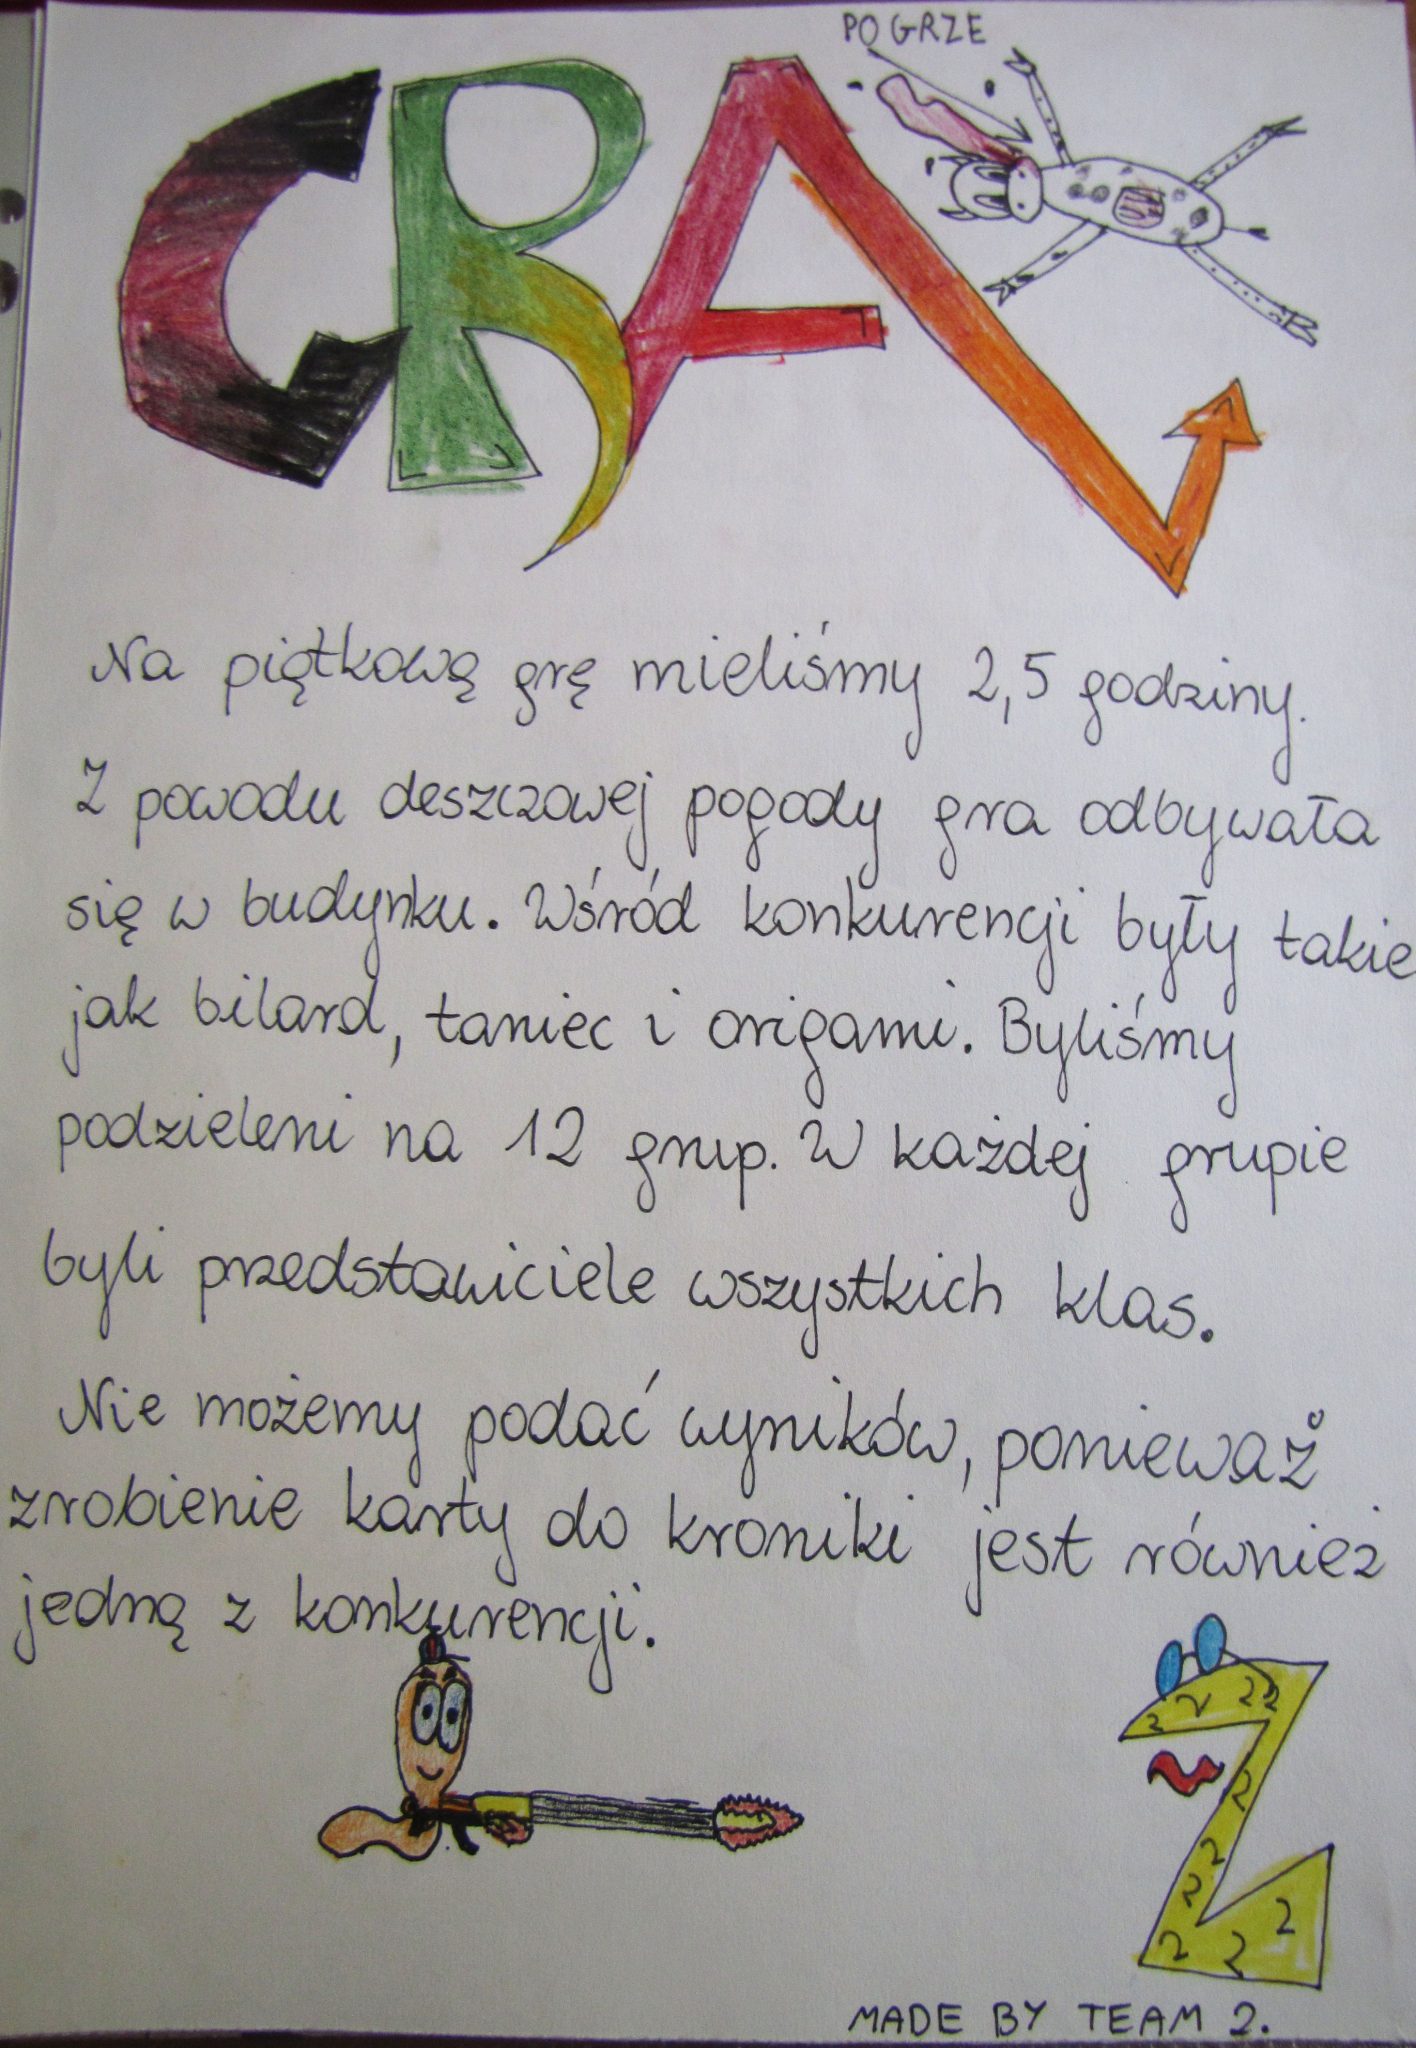 PO GRZE
GRA
Na piątkową grę mieliśmy 2,5 godziny.
Z powodu deszczowej pogody gra odbywała
się w budynku. Wśród konkurencji były takie
jak bilard, taniec i origami. Byliśmy
podzieleni na 12 grup. W każdej grupie
byli przedstawiciele wszystkich klas.
Nie możemy podać wyników, ponieważ
zrobienie karty do kroniki jest również
jedną z konkurencji.
2 2 2 2
2
2
2
2 2 2
MADE BY TEAM 2.